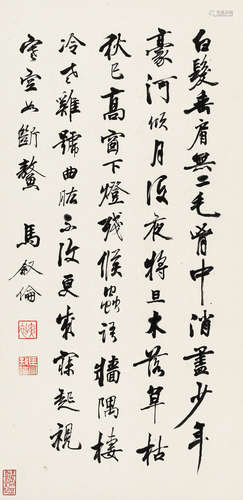 白髮垂肩無二毛胷中消盡少年
豪河傾月沒夜將旦木落草枯
秋已高窗下燈殘候蟲語牆隅棲
冷老雞號曲肱不更寐起視
空如斷鼇
馬叙倫